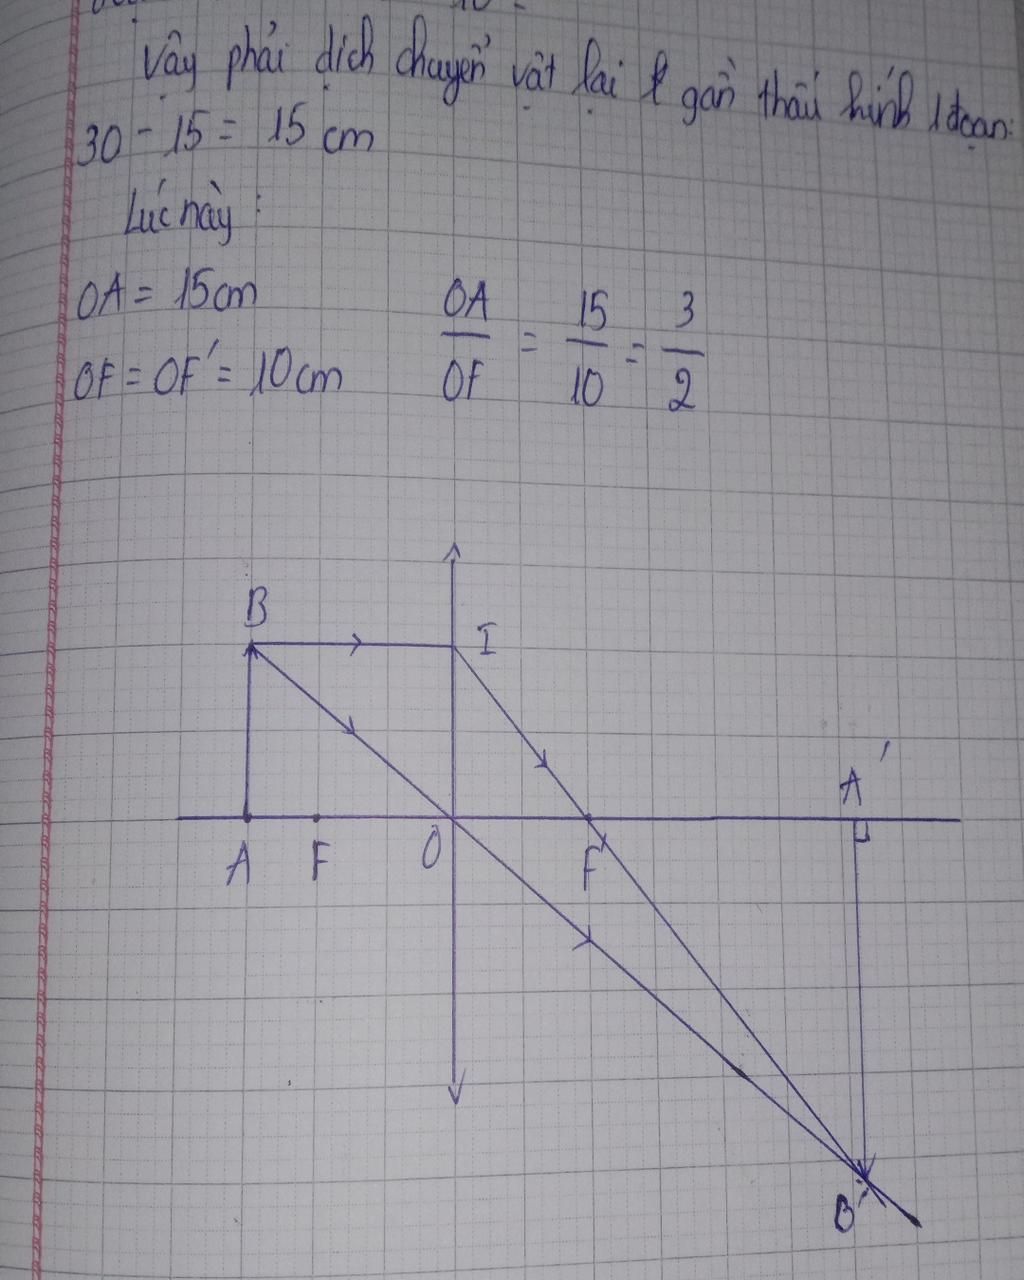 Vậy phải dịch chuyển vật lại gần thấu kính 1 đoạn:
30 - 15 = 15 cm
Lúc này:
OA = 15cm
OF = OF' = 10cm
OA/OF = 15/10 = 3/2
B
I
A'
A F O F'
B'